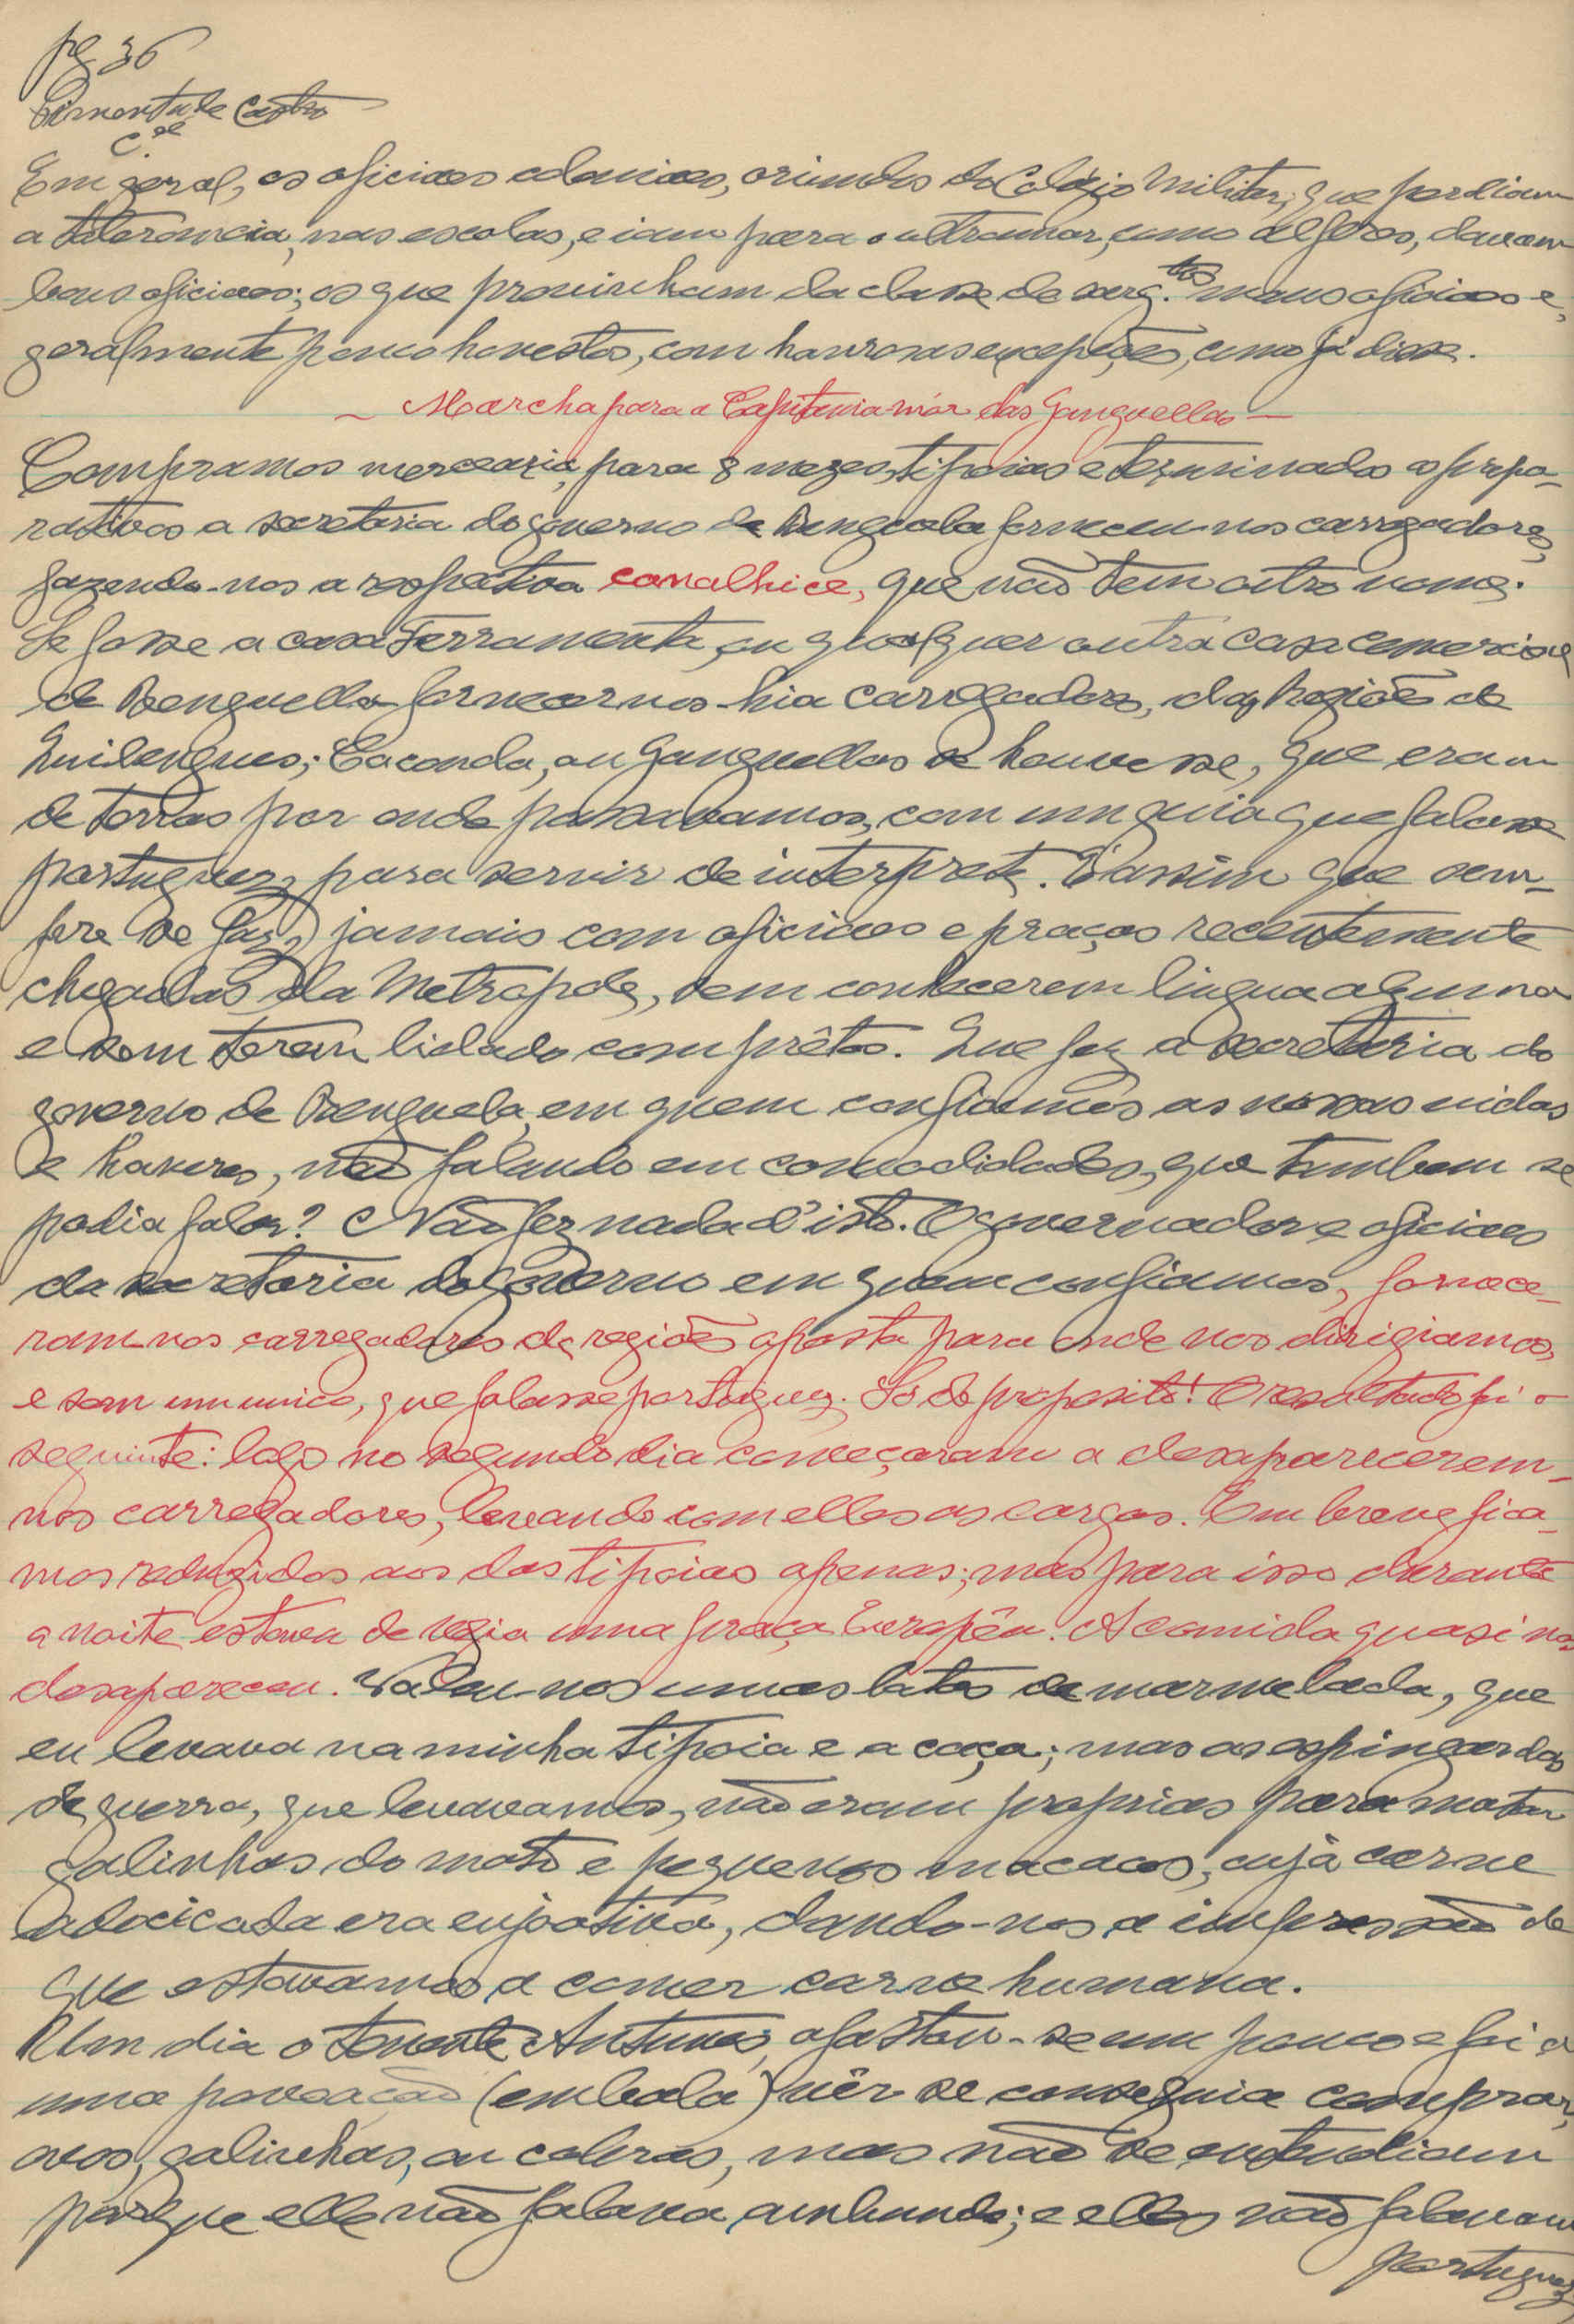 pg 36
Pimenta de Castro
C.el
Em geral, os oficiaes coloniaes, oriundos do Colegio Militar, que perdiam
a tolerancia, nas escolas, e iam para o ultramar, como alferes, davam
bons oficiaes; os que provinham da classe de sarg.tos maus oficiaes e,
geralmente pouco honestos, com honrosas excepções, como já disse.
— Marcha para a Capitania mór das Ganguellas —
Compramos mercearia, para 8 mezes, tipoias e terminados os prepa-
rativos a secretaria do governo de Benguela forneceu-nos carregadores,
fazendo-nos a respectiva canalhice, que não tem outro nome.
Se fosse a casa Ferramenta, ou qualquer outra casa comercial
de Benguella fornecer-nos-hia carregadores, das regiões de
Quilengues, Caconda, ou Ganguellas se houvesse, que eram
de terras por onde passavamos, com um guia que falasse
portuguez, para servir de interprete. É assim que sem-
pre se faz, jamais com oficiaes e praças recentemente
chegados da Metropole, sem conhecerem lingua alguma
e sem terem lidado com prêtos. Que fez a secretaria do
governo de Benguela, em quem confiamos as nossas vidas
e haveres, não falando em comodidades, que tambem se
podia falar? Não fez nada d'isto. O governador e oficiaes
da secretaria do Governo em quem confiamos, fornece-
ram-nos carregadores da região oposta para onde nos dirigiamos,
e sem um unico, que falasse portuguez. Só de proposito! O resultado foi o
seguinte: logo no segundo dia começaram a desaparecerem-
nos carregadores, levando com elles as cargas. Em breve fica-
mos reduzidos aos das tipoias apenas; mas para isso durante
a noite estava de vigia uma praça Europêa. A comida quasi nos
desapareceu. Valeu-nos umas latas de marmelada, que
eu levava na minha tipoia e a caça; mas as espingardas
de guerra, que levavamos, não eram proprias para matar
galinhas do mato e pequenos macacos, cuja carne
adocicada era enjoativa, dando-nos a impressão de
que estavamos a comer carne humana.
Um dia o tenente Antunes, afastou-se um pouco e foi a
uma povoação (embala) vêr se conseguia comprar,
ovos, galinhas, ou cabras, mas não se entendiam
porque elle não falava ambundo; e elles não falavam
portuguez